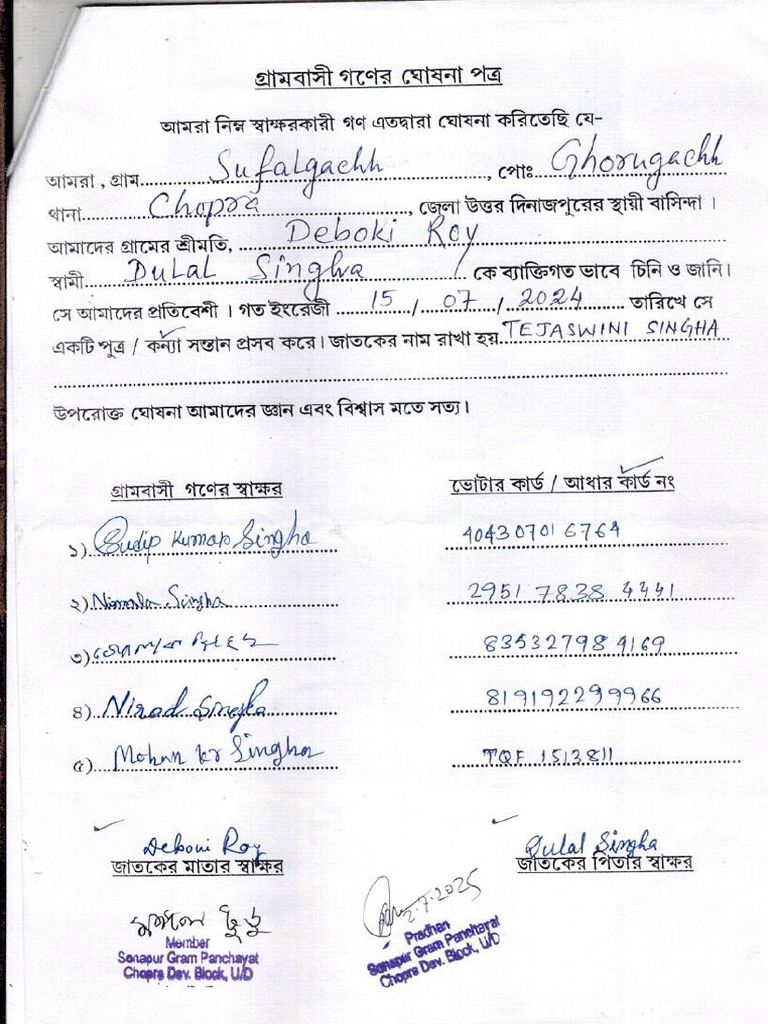 গ্রামবাসী গণের ঘোষনা পত্র
আমরা নিম্ন স্বাক্ষরকারী গণ এতদ্বারা ঘোষনা করিতেছি যে-
আমরা, গ্রাম Sufalgachh, পোঃ Ghorugachh
থানা Chopra, জেলা উত্তর দিনাজপুরের স্থায়ী বাসিন্দা।
আমাদের গ্রামের শ্রীমতি, Deboki Roy
স্বামী Dulal Singha কে ব্যাক্তিগত ভাবে চিনি ও জানি।
সে আমাদের প্রতিবেশী। গত ইংরেজী 15/07/2024 তারিখে সে
একটি পুত্র / কন্যা সন্তান প্রসব করে। জাতকের নাম রাখা হয় TEJASWINI SINGHA
উপরোক্ত ঘোষনা আমাদের জ্ঞান এবং বিশ্বাস মতে সত্য।
গ্রামবাসী গণের স্বাক্ষর ভোটার কার্ড / আধার কার্ড নং
১) Sudip Kumar Singha 404307016764
২) Nirmala Singha 2951 7838 4441
৩) 835327989169
৪) Nirad Singha 819192299966
৫) Mohan kr Singha TQF 1513811
Deboki Roy Dulal Singha
জাতকের মাতার স্বাক্ষর জাতকের পিতার স্বাক্ষর
2.7.2025
Member Pradhan
Sonapur Gram Panchayat Sonapur Gram Panchayat
Chopra Dev. Block, U/D Chopra Dev. Block, U/D